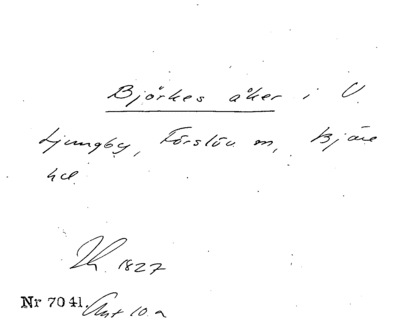 Björkes åker i V.
Ljungby, Förslöv sn, Bjäre
hd.
Lk. 1827
Nr 7041. Akt 10.a